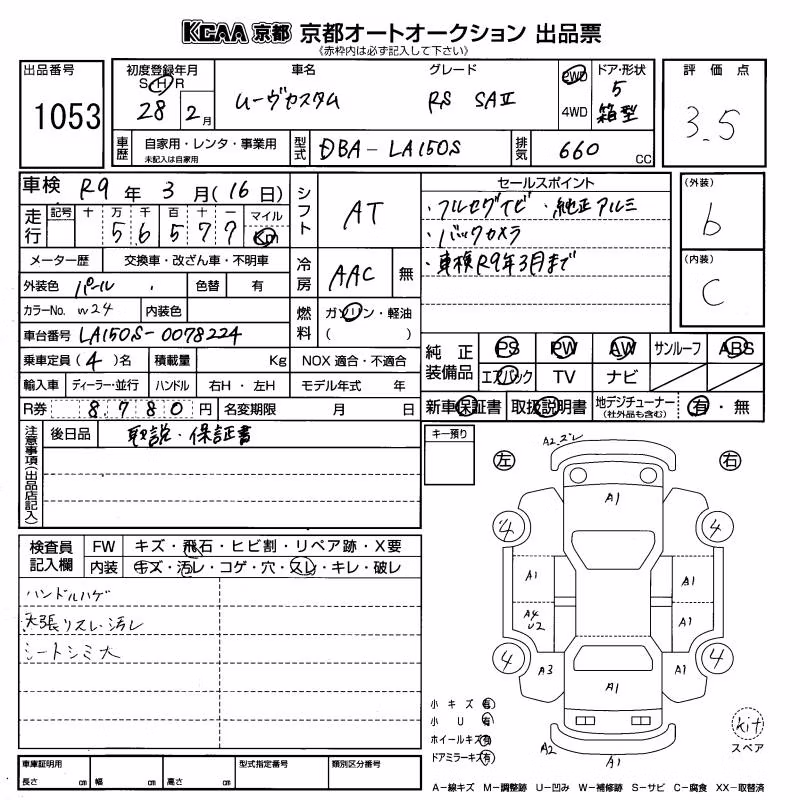 KCAA 京都 京都オートオークション 出品票
《赤枠内は必ず記入して下さい》
出品番号
1053
初度登録年月
S H R
28 2月
車名
ムーヴカスタム
グレード
RS SAⅡ
2WD
4WD
ドア・形状
5
箱型
評価点
3.5
車歴 自家用・レンタ・事業用
未記入は自家用
型式 DBA-LA150S
排気 660 CC
車検 R9年3月(16日)
走行 記号 十 万 千 百 十 一 マイル
5 6 5 7 7 Km
メーター歴 交換車・改ざん車・不明車
外装色 パール 色替 有
カラーNo. W24 内装色
車台番号 LA150S-0078224
乗車定員(4)名 積載量 Kg
輸入車 ディーラー・並行 ハンドル 右H・左H
R券 8,780円 名変期限 月 日
シフト AT
冷房 AAC 無
燃料 ガソリン・軽油
( )
NOX 適合・不適合
モデル年式 年
セールスポイント
・フルセグナビ・純正アルミ
・バックカメラ
・車検R9年3月まで
(外装)
b
(内装)
C
純正装備品 PS PW AW サンルーフ ABS
エアバック TV ナビ
新車保証書 取扱説明書 地デジチューナー
(社外品も含む)
有・無
注意事項(出品店記入)
後日品 取説・保証書
キー預り
検査員記入欄
FW キズ・飛石・ヒビ割・リペア跡・X要
内装 キズ・汚レ・コゲ・穴・スレ・キレ・破レ
ハンドルハゲ
天張りスレ汚レ
シートシミ大
左 右
A2 ズレ
A1
4 4
A1 A1
A4
U2
A1
4 4
A3 A1
A1
A2
A1
小キズ 有
小U 有
ホイールキズ 有
ドアミラーキズ 有
kit
スペア
車庫証明用
長さ cm 幅 cm 高さ cm
型式指定番号
類別区分番号
A－線キズ M－調整跡 U－凹み W－補修跡 S－サビ C－腐食 XX－取替済